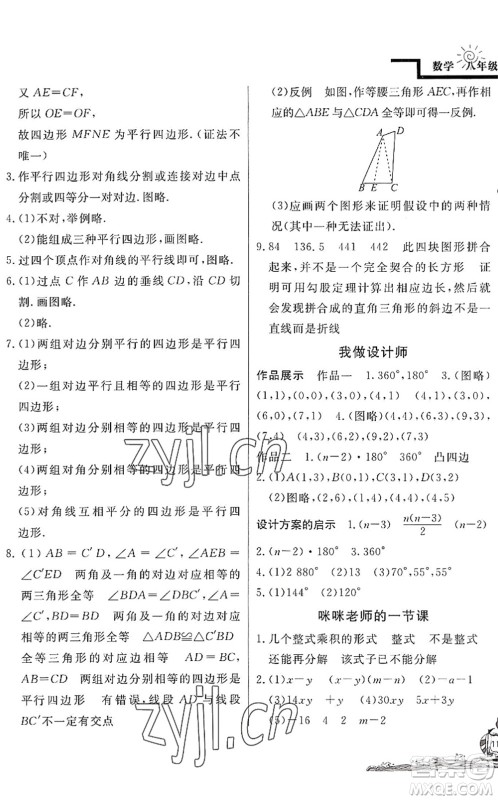 数学 八年级
又 AE＝CF，
所以 OE＝OF．
故四边形 MFNE 为平行四边形．（证法不
唯一）
3．作平行四边形对角线分割或连接对边中点
分割或四等分一对对边．图略．
4．(1)不对，举例略．
(2)能组成三种平行四边形，图略．
5．过四个顶点作对角线的平行线即可，图略．
6．(1)过点 C 作 AB 边的垂线 CD，沿 CD 剪
切割．画图略．
(2)略．
7．(1)两组对边分别平行的四边形是平行四
边形；
(2)一组对边平行且相等的四边形是平行
四边形；
(3)两组对边分别相等的四边形是平行四
边形；
(4)两组对角分别相等的四边形是平行四
边形；
(5)对角线互相平分的四边形是平行四
边形．
8．(1) AB ＝ C′D，∠A ＝ ∠C′，∠AEB ＝
∠C′ED 两角及一角的对边对应相等的
两三角形全等 ∠BDA＝∠DBC′ 两边及
夹角对应相等的两三角形全等 ∠A＝
∠C′ △ADB≌△C′BD 全等三角形
的对应边相等 AD＝BC′，
AB＝CD 两组对边分别相等的四边形是
平行四边形 有错误，线段 AD 与线段
BC′不一定有交点
(2)反例 如图，作等腰三角形 AEC，再作相
应的△ABE 与△CDA 全等即可得一反例．
A D
B E C
(3)应画两个图形来证明假设中的两种情
况（其中一种无法证出）．
9．84 136.5 441 442 此四块图形拼合
起来，并不是一个完全契合的长方形 证
明可用勾股定理计算出相应边长，然后就
会发现拼合成的直角三角形的斜边不是一
直线而是折线
我做设计师
作品展示 作品一 1．360°，180° 3．（图略）
(1,1)，(0,0)，(3,0)，(4,1) (4,1)，(3,0)，
(6,0)，(7,1) 4．（图略）(4,4)，(6,3)，(9,3)，
(7,4) (4,3)，(6,2)，(9,2)，(7,3)
作品二 1．(n－2)·180° 360° 凸四边
2．(1)A(1,3)，B(0,1)，C(3,1)，D(3,2)
(2)图略．
设计方案的启示 1．(n－3) n(n－3)/2 (n－2)
2．(n－2)·180° 3．360°
4．(1)2 880° (2)13 (3)70°，55°，55°
5．(1)144° (2)10
咪咪老师的一节课
1．几个整式乘积的形式 整式 不是最简
还能再分解 该式子已不能再分解
2．(1)(x＋y) (x－y)(m－n) (2)－a－1
(3)14x＋y (4)30x 5x＋3y
(5)－16 4 2 m－2
zyjl.cn
zyjl.cn